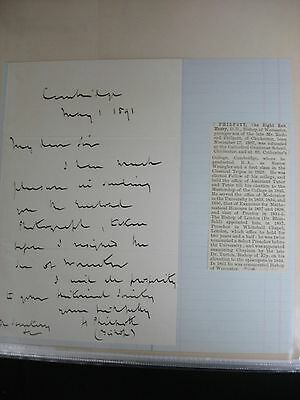 Cambridge
May 1 1891
My dear Sir
I have much
pleasure in sending
you the enclosed
Photograph, taken
before I resigned the
See of Worcester
I wish all prosperity
to your Historical Society
yours faithfully
H Philpott
(Bishop)
PHILPOTT, the Right Rev.
Henry, D.D., Bishop of Worcester,
younger son of the late Mr. Rich-
ard Philpott, of Chichester, born
November 17, 1807, was educated
at the Cathedral Grammar School,
Chichester and at St. Catharine's
College, Cambridge, where he
graduated B.A., as Senior
Wrangler and a first class in the
Classical Tripos in 1829. He was
elected Fellow of his college, and
held the office of Assistant Tutor
and Tutor till his election to the
Mastership of the College in 1845.
He served the office of Moderator
in the University in 1833, 1834, and
1836, that of Examiner for Mathe-
matical Honours in 1837 and 1838,
and that of Proctor in 1834-5.
The Bishop of London (Dr. Blom-
field) appointed him, in 1837,
Preacher in Whitehall Chapel,
London, which office he held for
two years and a half; he was twice
nominated a Select Preacher before
the University; and was appointed
examining Chaplain by the late
Dr. Turton, Bishop of Ely, on his
elevation to the episcopate in 1845.
In 1860 he was consecrated Bishop
of Worcester.